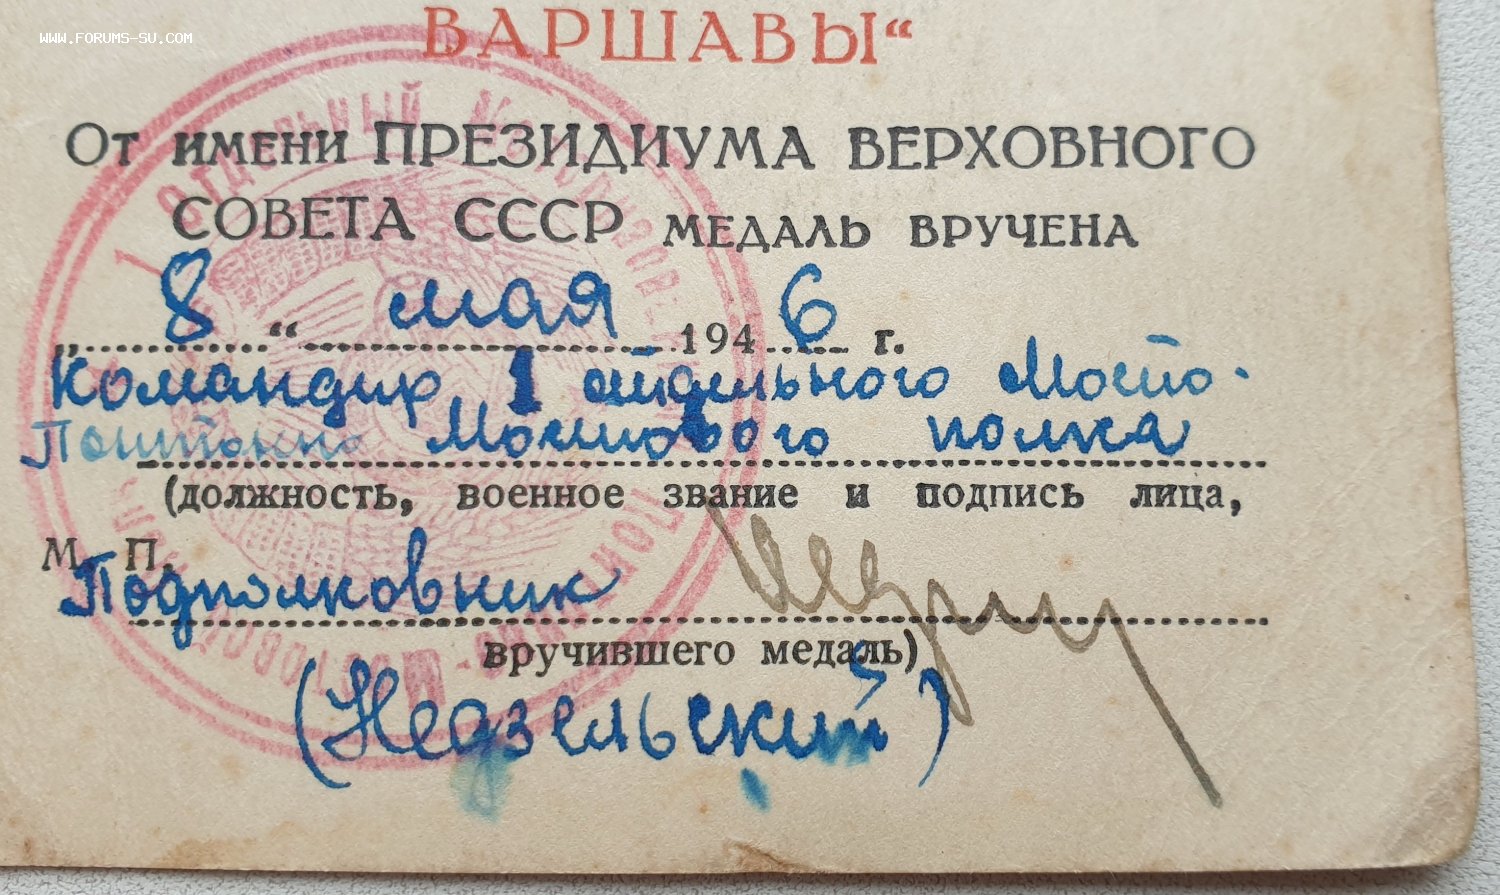 WWW.FORUMS-SU.COM
ВАРШАВЫ"
От имени ПРЕЗИДИУМА ВЕРХОВНОГО
СОВЕТА СССР МЕДАЛЬ ВРУЧЕНА
„ 8 " мая 1946 г.
Командир 1 отдельного Мосто-
Понтонно Мостового полка
(должность, военное звание и подпись лица,
М. П.
Подполковник
вручившего медаль)
(Недзельский)
ОТДЕЛЬНЫЙ